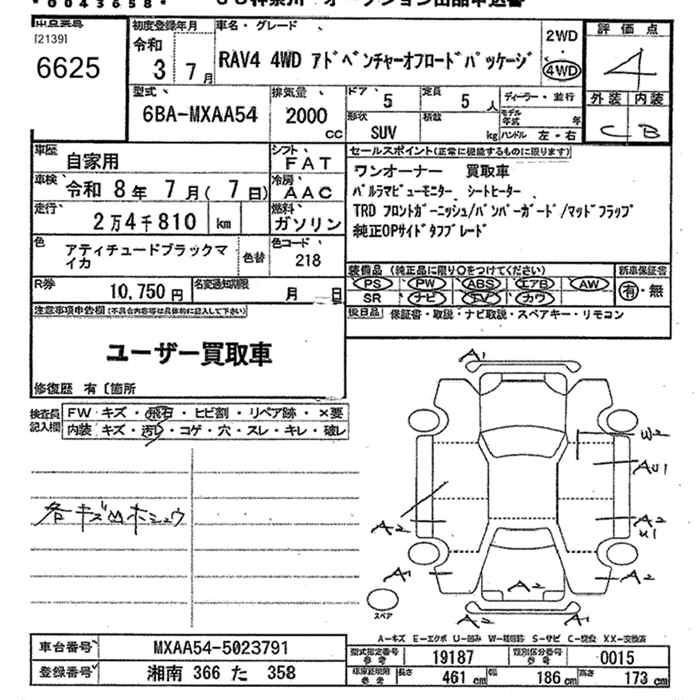 *0043658*
[2139]
6625
初度登録年月
令和
3 7月
車名・グレード
RAV4 4WD アドベンチャーオフロードパッケージ
2WD
・
4WD
評価点
4
外装 内装
C B
型式
6BA-MXAA54
排気量
2000
cc
ドア 5
定員 5 人
ディーラー・並行
形状 SUV
積載 kg
モデル年式 年
ハンドル 左・右
車歴
自家用
シフト
FAT
車検
令和 8年 7月( 7日)
冷房
AAC
走行
2万4千810 km
燃料
ガソリン
色
アティチュードブラックマイカ
色替
色コード
218
R券
10,750円
名変通知期限
月 日
セールスポイント(正常に機能するものに限ります)
ワンオーナー 買取車
パノラマビューモニター シートヒーター
TRD フロントガーニッシュ/バンパーガード/マッドフラップ
純正OPサイドタフブレード
装備品 (純正品に限り○をつけてください)
新車保証書
PS PW ABS エアB AW
SR ナビ TV カワ
有・無
後日品 保証書・取説・ナビ取説・スペアキー・リモコン
注意事項申告欄(不具合内容等は具体的に記入して下さい)
ユーザー買取車
修復歴 有〔箇所
検査員記入欄
FW キズ・飛石・ヒビ割・リペア跡・×要
内装 キズ・汚れ・コゲ・穴・スレ・キレ・破レ
各キズ凹ホシュウ
A1
W2
AU1
A2
A2
U1
A1
A2
A1
A2
A1
スペア
A-キズ E-エクボ U-凹み W-補修跡 S-サビ C-腐食 XX-交換済
車台番号
MXAA54-5023791
登録番号
湘南 366 た 358
型式指定番号 参考
19187
類別区分番号 参考
0015
長さ 461 cm
幅 186 cm
高さ 173 cm